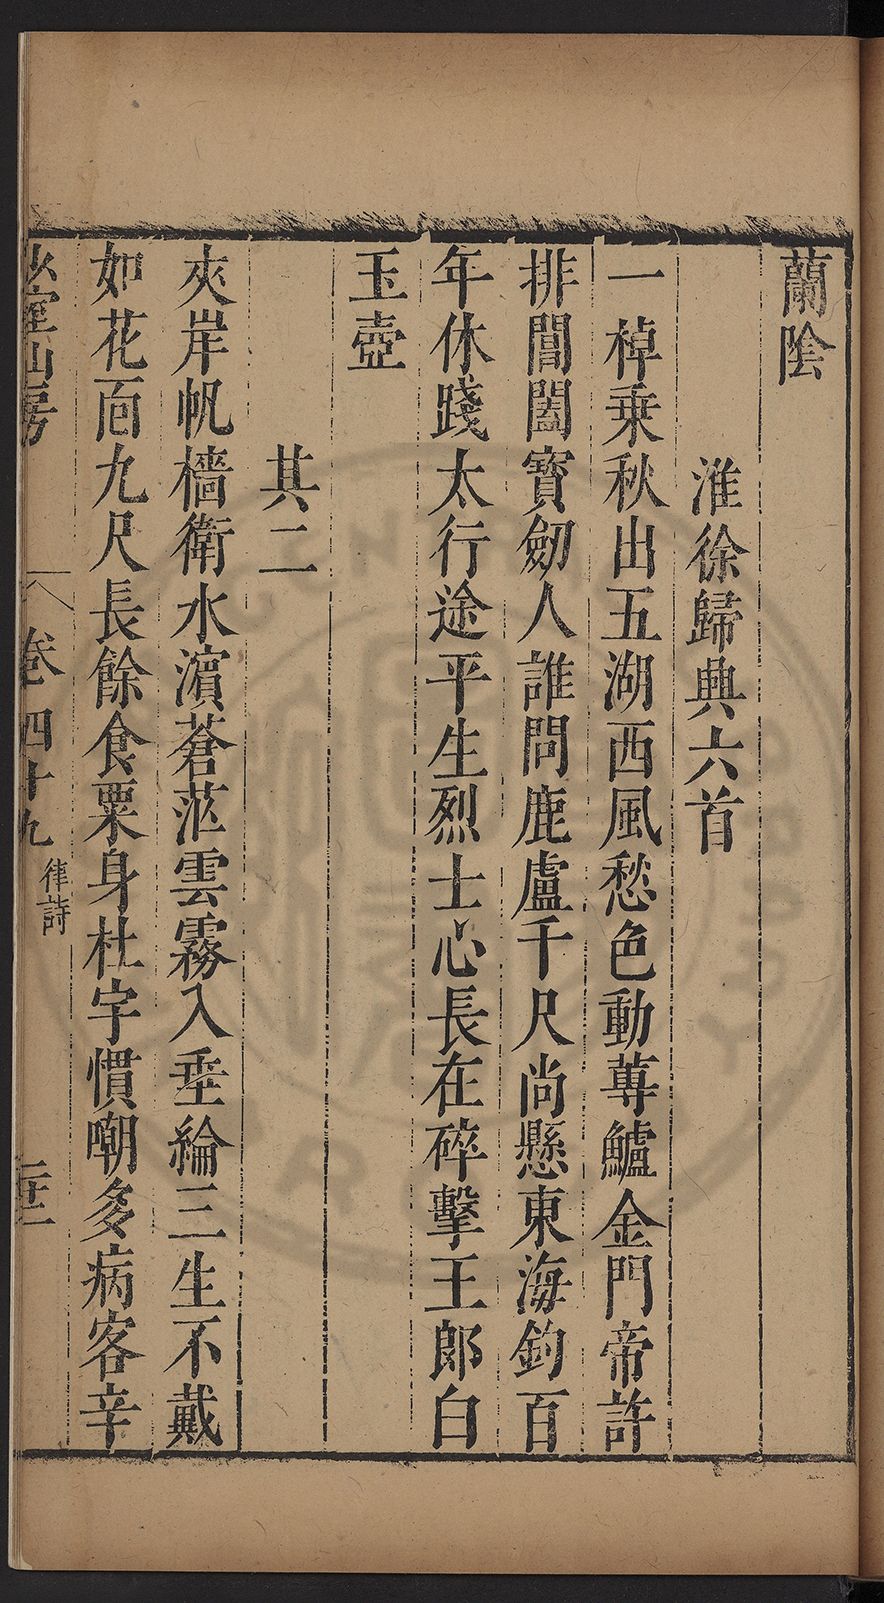 蘭陰
淮徐歸興六首
一棹乗秋出五湖西風愁色動蓴鱸金門帝許
排閶闔寶劒人誰問鹿盧千尺尚懸東海鉤百
年休踐太行途平生烈士心長在碎擊王郎白
玉壺
其二
夾岸帆檣衛水濵蒼茫雲霧入垂綸三生不戴
如花面九尺長餘食粟身杜宇慣嘲多病客辛
室山房 卷四十九 律詩 二十二